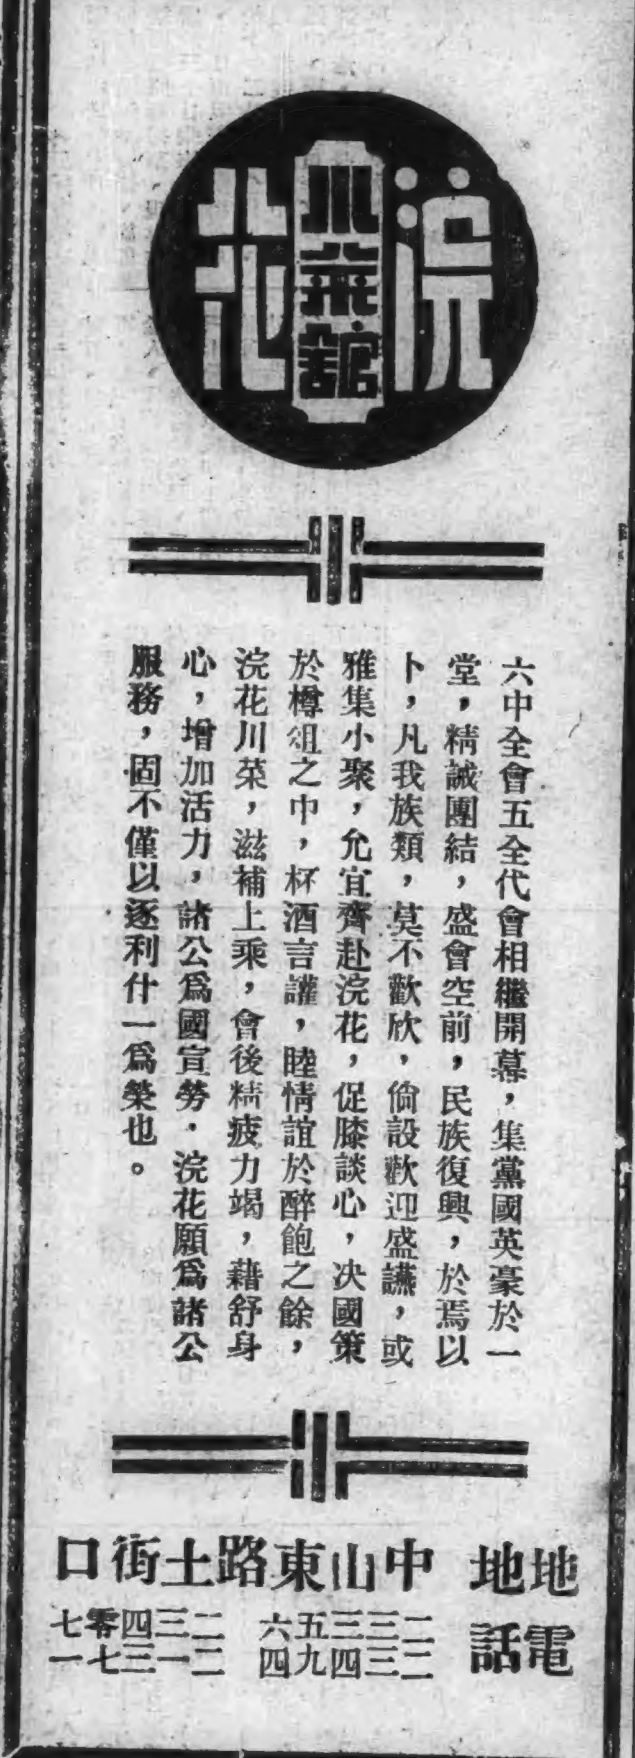 浣花
川菜館
六中全會五全代會相繼開幕，集黨國英豪於一
堂，精誠團結，盛會空前，民族復興，於焉以
卜，凡我族類，莫不歡欣，倘設歡迎盛讌，或
雅集小聚，允宜齊赴浣花，促膝談心，決國策
於樽俎之中，杯酒言讙，睦情誼於醉飽之餘，
浣花川菜，滋補上乘，會後精疲力竭，藉舒身
心，增加活力，諸公爲國宣勞．浣花願爲諸公
服務，固不僅以逐利什一爲榮也。
地地 中山東路土街口
電話 二三三五六 二三四零七
二三四九四 二一三七一